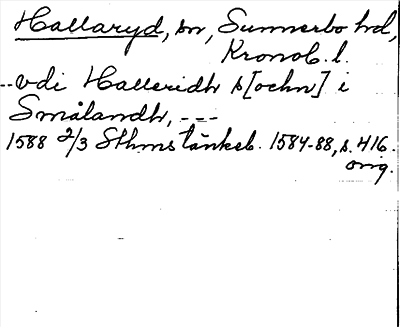 Hallaryd, sn, Sunnerbo hd,
Kronob. l.
--vdi Halleridh s[ochn] i
Smålandh, ---
1588 2/3 Sthms tänkeb. 1584-88, s. 416.
orig.